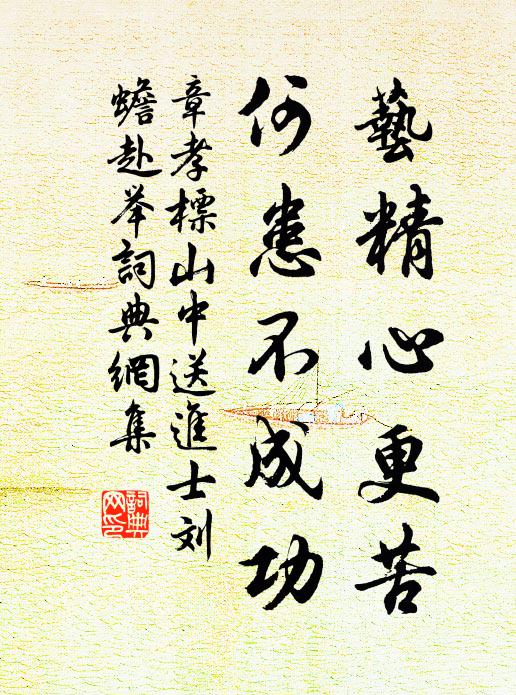 藝精心更苦
何患不成功
章孝標山中送進士刘
蟾赴举詞典網集
詞典网印